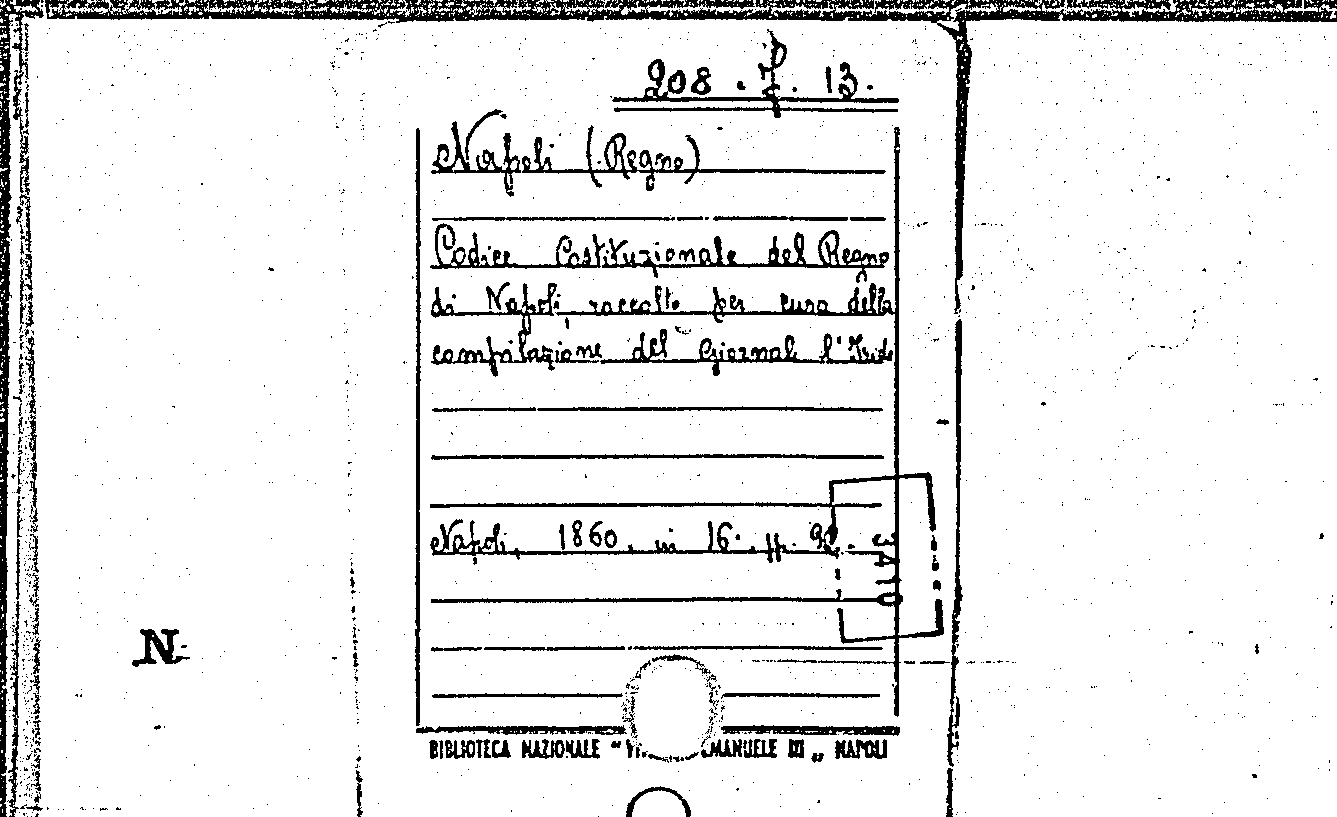 208. 13.
Napoli (Regno)
Codice Costituzionale del Regno
di Napoli, raccolto per cura della
compilazione del Giornale l'Iride
Napoli, 1860, in 16°. pp.
3410
N
BIBLIOTECA NAZIONALE " EMANUELE III „ NAPOLI